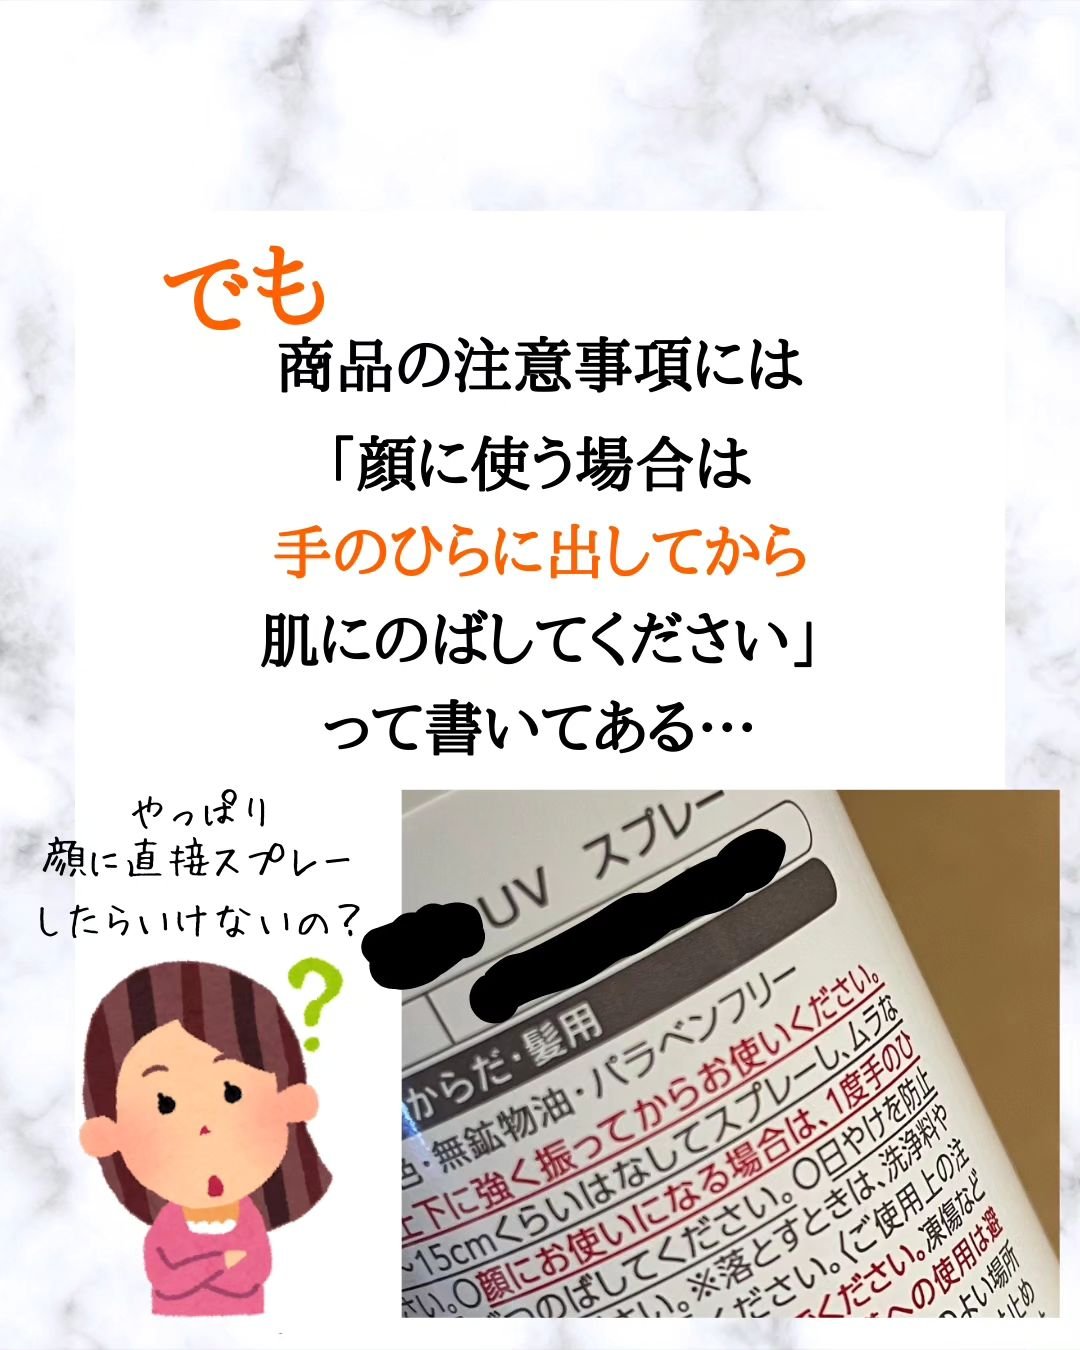 でも
商品の注意事項には
「顔に使う場合は
手のひらに出してから
肌にのばしてください」
って書いてある…
やっぱり
顔に直接スプレー
したらいけないの？
?
UV スプレー
からだ・髪用
色・無鉱物油・パラベンフリー
上下に強く振ってからお使いください。
15cmくらいはなしてスプレーし、ムラな
さい。○顔にお使いになる場合は、1度手のひ
つのばしてください。○日やけを防止
さい。※落とすときは、洗浄料や
ください。〈ご使用上の注
ください。凍傷など
への使用は避
のよい場所
止め